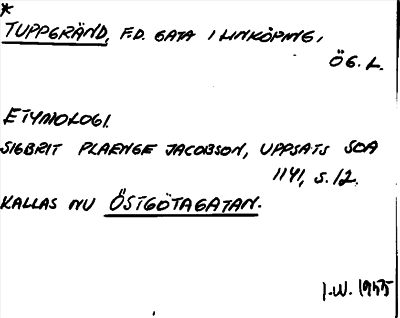 *
TUPPGRÄND, F.D. GATA I LINKÖPING,
ÖG. L.
ETYMOLOGI.
SIGBRIT PLAENGE JACOBSON, UPPSATS SOA
1141, S. 12.
KALLAS NU ÖSTGÖTAGATAN.
I.W. 1955